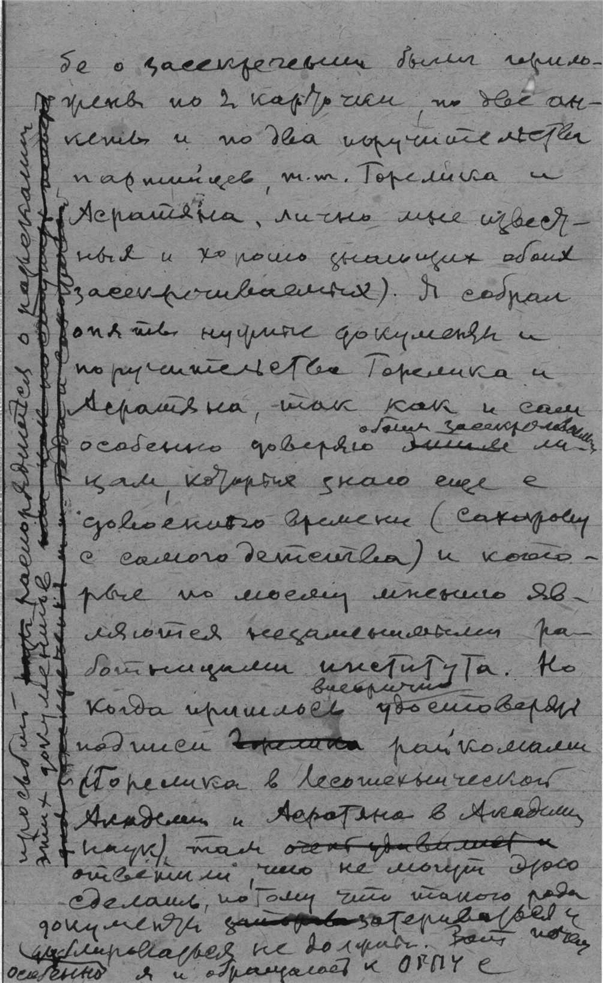 бе о засекречении были прило-
жены по 2 карточки, по две ан-
кеты и по два поручительства
партийцев, т.т. Горелика и
Асратяна, лично мне извест-
ных и хорошо знающих обоих
засекречиваемых). Я собрал
опять нужные документы и
поручительства Горелика и
Асратяна, так как и сам
обоим засекречиваемым
особенно доверяю этим ли-
цам, которых знаю еще с
довоенного времени (Сахарову
с самого детства) и кото-
рые по моему мнению яв-
ляются незаменимыми ра-
ботницами института. Но
вторично
когда пришлось удостоверять
подписи Горелика райкомами
(Горелика в Лесотехнической
Академии и Асратяна в Академии
Наук), там
ответили, что не могут этого
сделать, потому что такого рода
документы затериваться и
дублироваться не должны. Вот почему
особенно я и обращаюсь к ОГПУ с
просьбой распорядиться о разыскании
этих документов